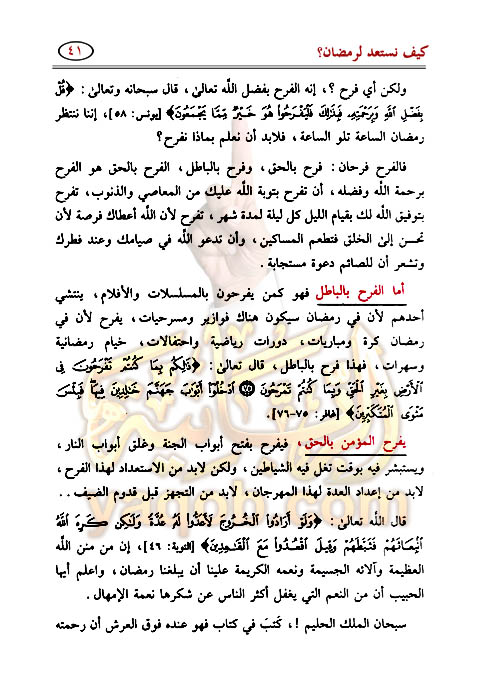 كيف نستعد لرمضان؟
٤١
ولكن أي فرح ؟، إنه الفرح بفضل اللَّه تعالىٰ، قال سبحانه وتعالىٰ : ﴿قُلْ
بِفَضْلِ اللَّهِ وَبِرَحْمَتِهِ فَبِذَٰلِكَ فَلْيَفْرَحُوا هُوَ خَيْرٌ مِّمَّا يَجْمَعُونَ﴾ [يونس: ٥٨]، إننا ننتظر
رمضان الساعة تلو الساعة، فلابد أن نعلم بماذا نفرح؟
فالفرح فرحان: فرح بالحق، وفرح بالباطل، الفرح بالحق هو الفرح
برحمة اللَّه وفضله، أن تفرح بتوبة اللَّه عليك من المعاصي والذنوب، تفرح
بتوفيق اللَّه لك بقيام الليل كل ليلة لمدة شهر، تفرح لأن اللَّه أعطاك فرصة لأن
تحسن إلىٰ الخلق فتطعم المساكين، وأن تدعو اللَّه في صيامك وعند فطرك
وتشعر أن للصائم دعوة مستجابة.
أما الفرح بالباطل فهو كمن يفرحون بالمسلسلات والأفلام، ينتشي
أحدهم لأن في رمضان سيكون هناك فوازير ومسرحيات، يفرح لأن في
رمضان كرة ومباريات، دورات رياضية واحتفالات، خيام رمضانية
وسهرات، فهذا فرح بالباطل، قال تعالىٰ: ﴿ذَٰلِكُم بِمَا كُنتُمْ تَفْرَحُونَ فِي
الْأَرْضِ بِغَيْرِ الْحَقِّ وَبِمَا كُنتُمْ تَمْرَحُونَ ٧٥ ادْخُلُوا أَبْوَابَ جَهَنَّمَ خَالِدِينَ فِيهَا فَبِئْسَ
مَثْوَى الْمُتَكَبِّرِينَ﴾ [غافر: ٧٥-٧٦].
يفرح المؤمن بالحق، فيفرح بفتح أبواب الجنة وغلق أبواب النار،
ويستبشر فيه بوقت تغل فيه الشياطين، ولكن لابد من الاستعداد لهذا الفرح،
لابد من إعداد العدة لهذا المهرجان، لابد من التجهز قبل قدوم الضيف..
قال اللَّه تعالىٰ: ﴿وَلَوْ أَرَادُوا الْخُرُوجَ لَأَعَدُّوا لَهُ عُدَّةً وَلَٰكِن كَرِهَ اللَّهُ
انبِعَاثَهُمْ فَثَبَّطَهُمْ وَقِيلَ اقْعُدُوا مَعَ الْقَاعِدِينَ﴾ [التوبة: ٤٦]، إن من منن اللَّه
العظيمة وآلائه الجسيمة ونعمه الكريمة علينا أن يبلغنا رمضان، واعلم أيها
الحبيب أن من النعم التي يغفل أكثر الناس عن شكرها نعمة الإمهال.
سبحان الملك الحليم !، كَتبَ في كتاب فهو عنده فوق العرش أن رحمته